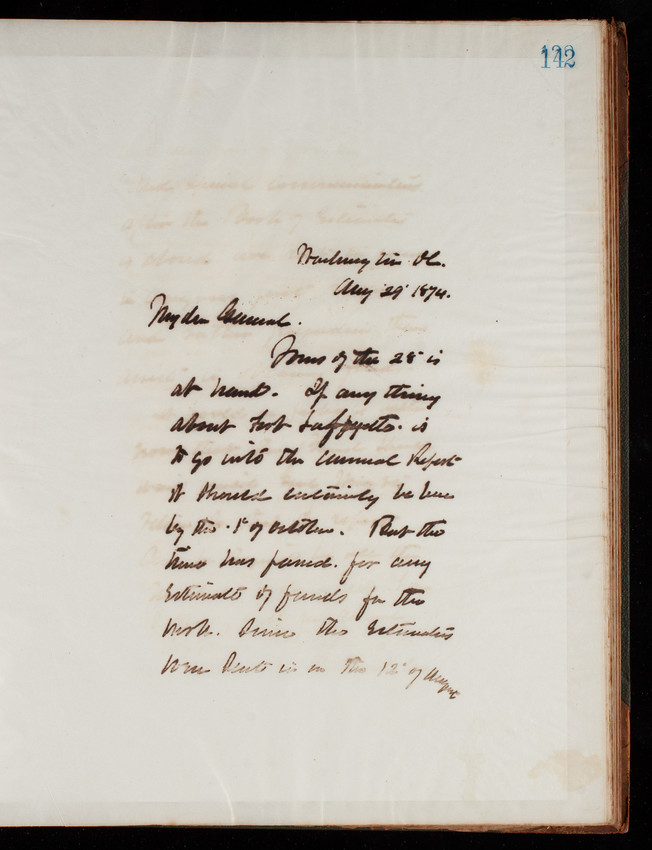 142
Washington DC.
Aug 29' 1874.
My dear General.
Yours of the 28' is
at hand. If any thing
about Fort Lafayette is
to go into the Annual Report
it should certainly be here
by the 1st of October. But the
time has passed for any
Estimate of funds for the
work. Since the Estimates
were sent in on the 12' of August